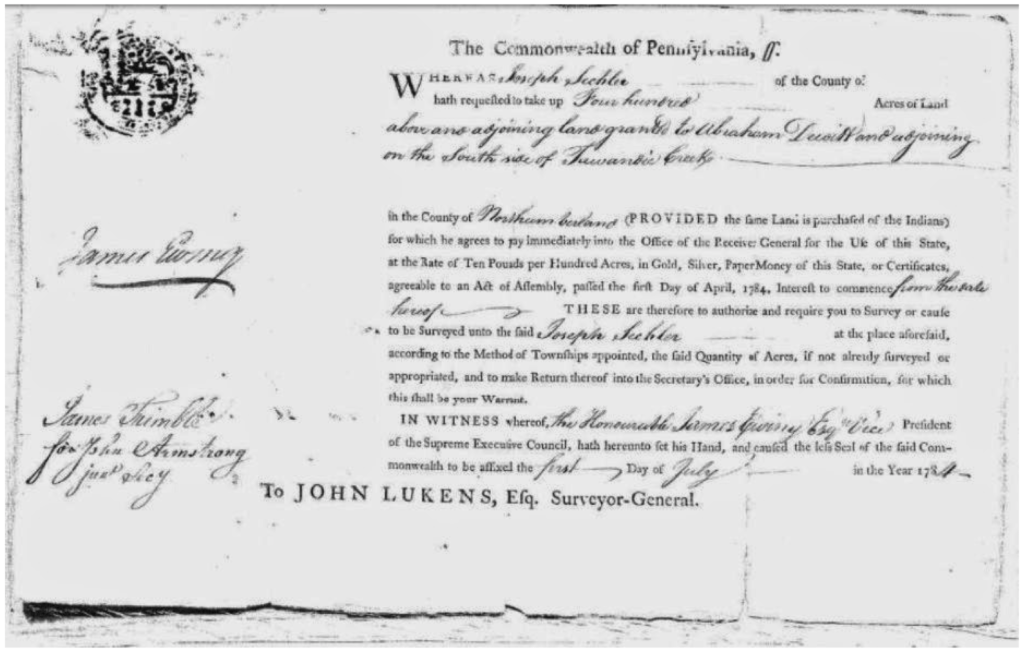 The Commonwealth of Pennſylvania, ſſ.
WHEREAS Joseph Sechler of the County of
hath requeſted to take up Four hundred Acres of Land
above and adjoining land granted to Abraham Dewitt and adjoining
on the South side of Tuwandie Creek
in the County of Northumberland (PROVIDED the ſame Land is purchaſed of the Indians)
for which he agrees to pay immediately into the Office of the Receiver General for the Uſe of this State,
at the Rate of Ten Pounds per Hundred Acres, in Gold, Silver, Paper Money of this State, or Certificates,
agreeable to an Act of Aſſembly, paſſed the firſt Day of April, 1784, Intereſt to commence from the date
hereof THESE are therefore to authorize and require you to Survey or cauſe
to be Surveyed unto the ſaid Joseph Sechler at the place aforeſaid,
according to the Method of Townſhips appointed, the ſaid Quantity of Acres, if not already ſurveyed or
appropriated, and to make Return thereof into the Secretary's Office, in order for Confirmation, for which
this ſhall be your Warrant.
IN WITNESS whereof, the Honourable James Ewing Esqr. Vice Preſident
of the Supreme Executive Council, hath hereunto ſet his Hand, and cauſed the leſs Seal of the ſaid Com-
monwealth to be affixed the first Day of July in the Year 1784
To JOHN LUKENS, Eſq. Surveyor-General.
James Ewing
James Trimble
for John Armstrong
junr. Secy